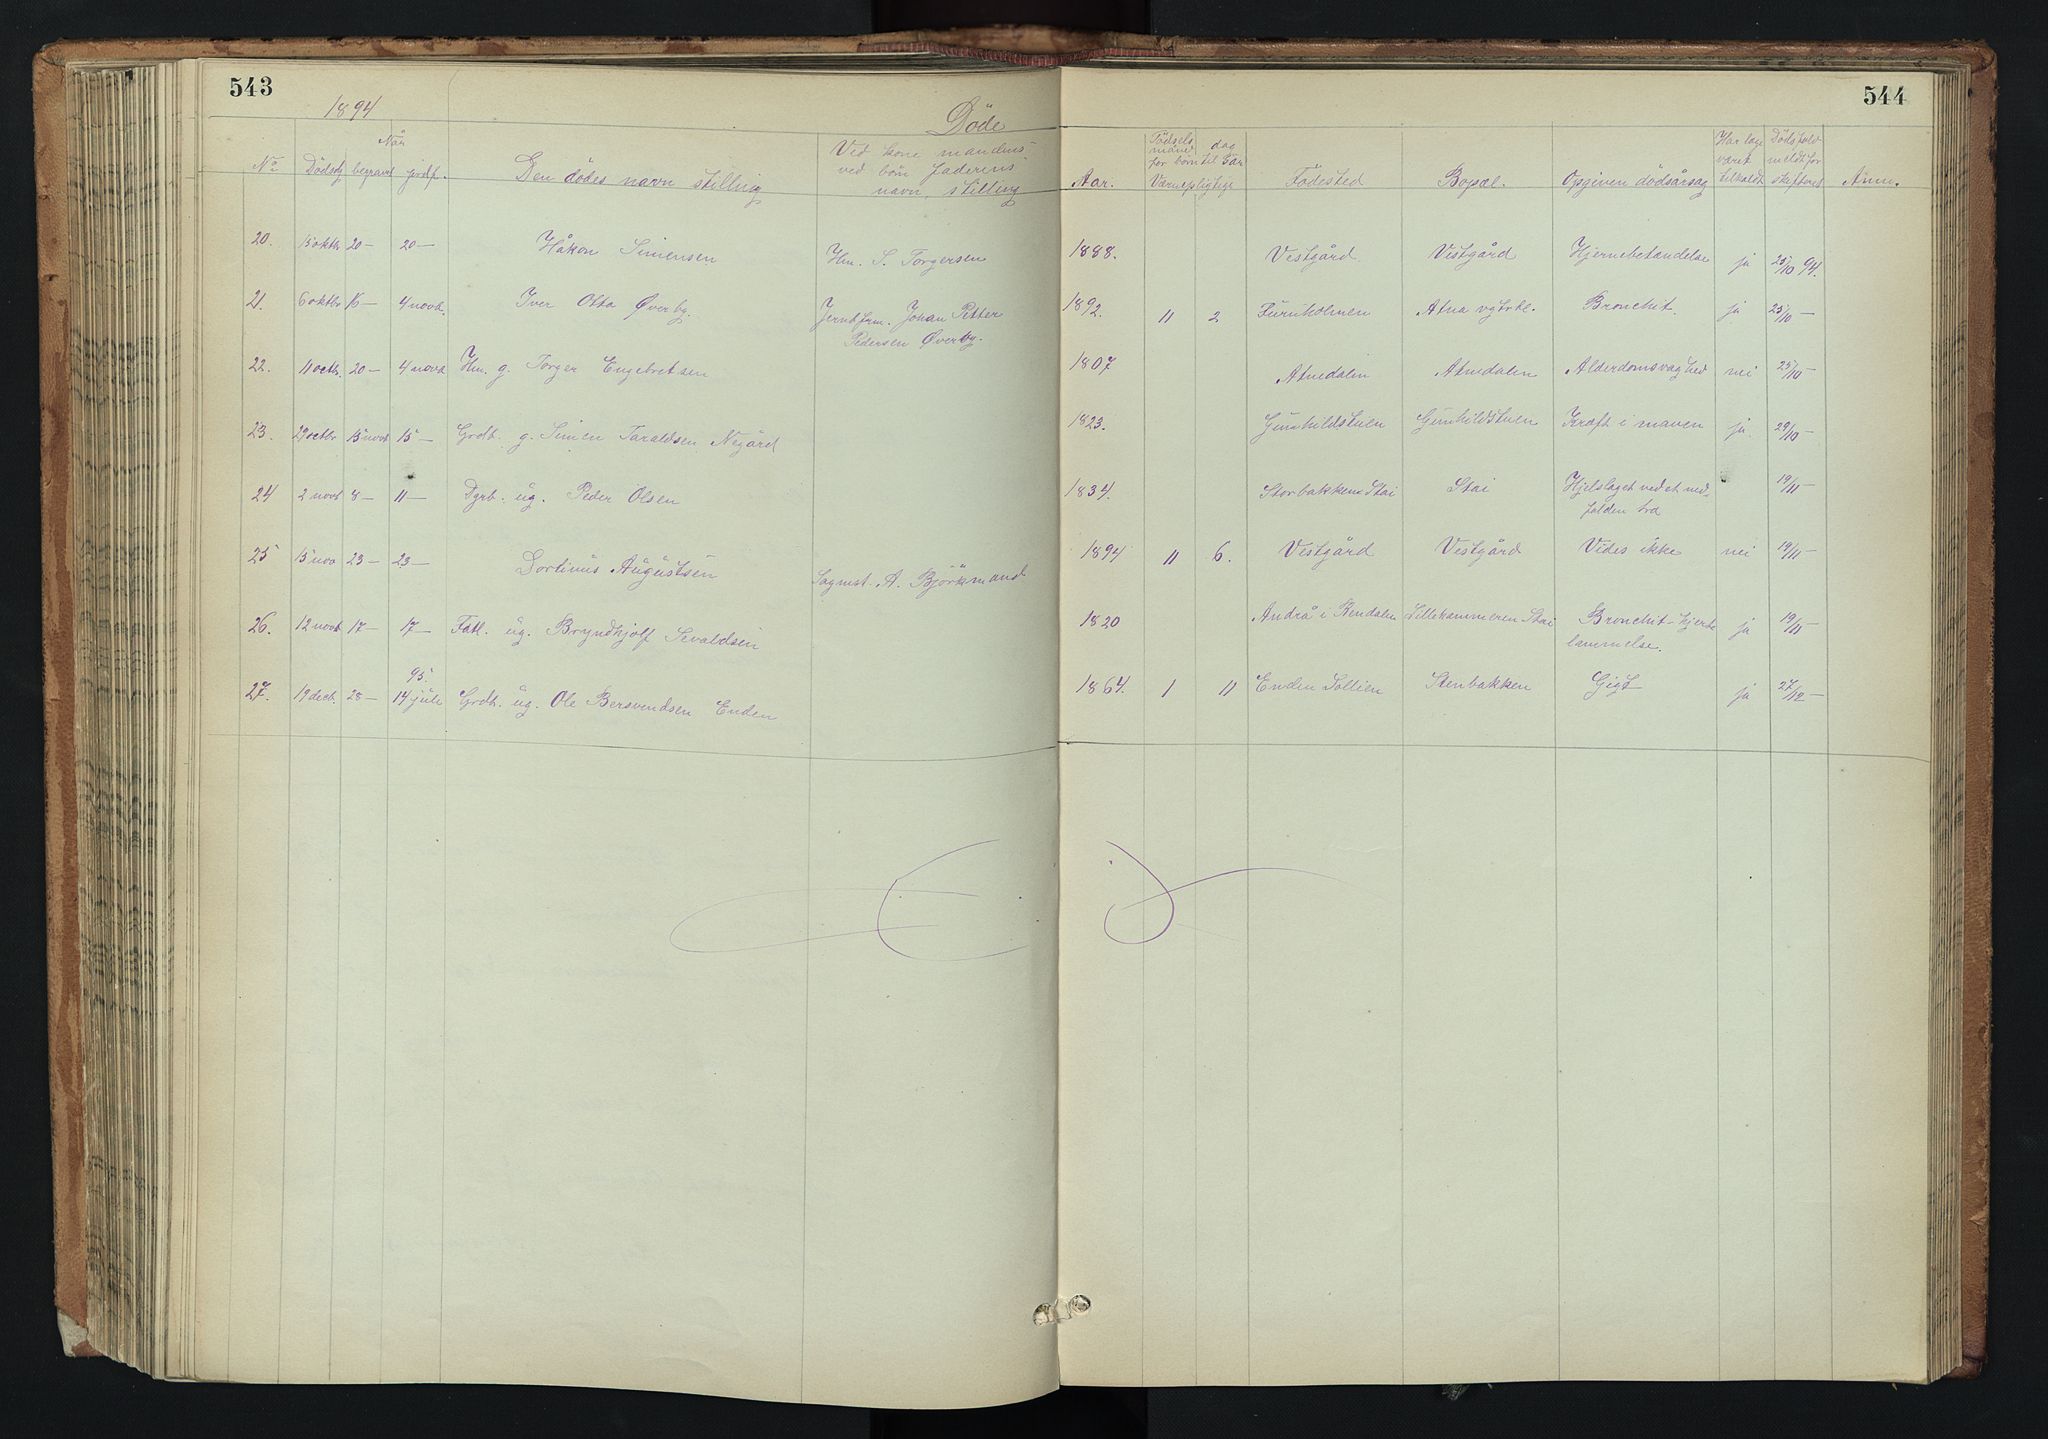 543
1894
Döde
544
No Dødsdg begravet Når jordf. Den dödes navn stilling Ved kone mandens ved börn faderens navn, stilling Aar. Fødsels måned dag for børn til 2 år Værnepligtige Födested Bopæl. Opgiven dödsårsag Har læge været tilkaldt Dødsfald meldt for skifteret Anm.
20. 15 oktbr 20 — 20 — Håkon Simensen Hm. S. Torgersen 1888. Vestgård Vestgård Hjernebetændelse ja 25/10 94.
21. 6 oktbr 15 — 4 novb. Iver Otto Øverby. Jernbfrm. Johan Petter 1892. 11 2 Furuholmen Atna vgtrbl. Bronchit. ja 25/10 —
Pedersen Øverby.
22. 11 octbr. 20 — 4 novb Hm. g. Torger Engebretsen 1807 Atnedalen Atnedalen Alderdomsvaghed nei 25/10 —
23. 29 octbr 15 novb 15 — Grdb. g. Simen Taraldsen Negård 1823. Gunhildstuen Gunhildstuen Kræft i maven ja 29/10 —
24 2 novb 8 — 11 — Dgrb. ug. Peder Olsen 1834. Storbakken Stai Stai Hjelslaget ved et ned- 19/11 —
falden træ
25 15 nov 23 — 23 — Sortinus Augustsen Sagmst. A. Björkmand 1894 11 6. Vestgård Vestgård Vides ikke nei 19/11 —
26. 12 novb 17 — 17 — Fatl. ug. Bryndhjolf Sevaldsen 1820 Andrå i Rendalen Lillekammeren Stai Bronchit - hjerte ja 19/11 —
lammelse.
95.
27. 19 dect. 28 — 14 jule Grdb. ug. Ole Bersvendsen Enden 1864. 1 11 Enden Sollien Stenbakken Gigt ja 27/12 —